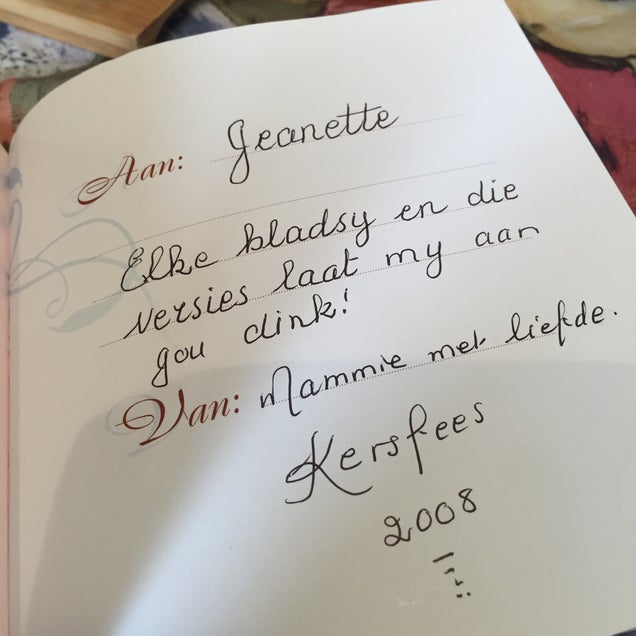 Aan: Jeanette
Elke bladsy en die
versies laat my aan
jou dink!
Van: Mammie met liefde.
Kersfees
2008